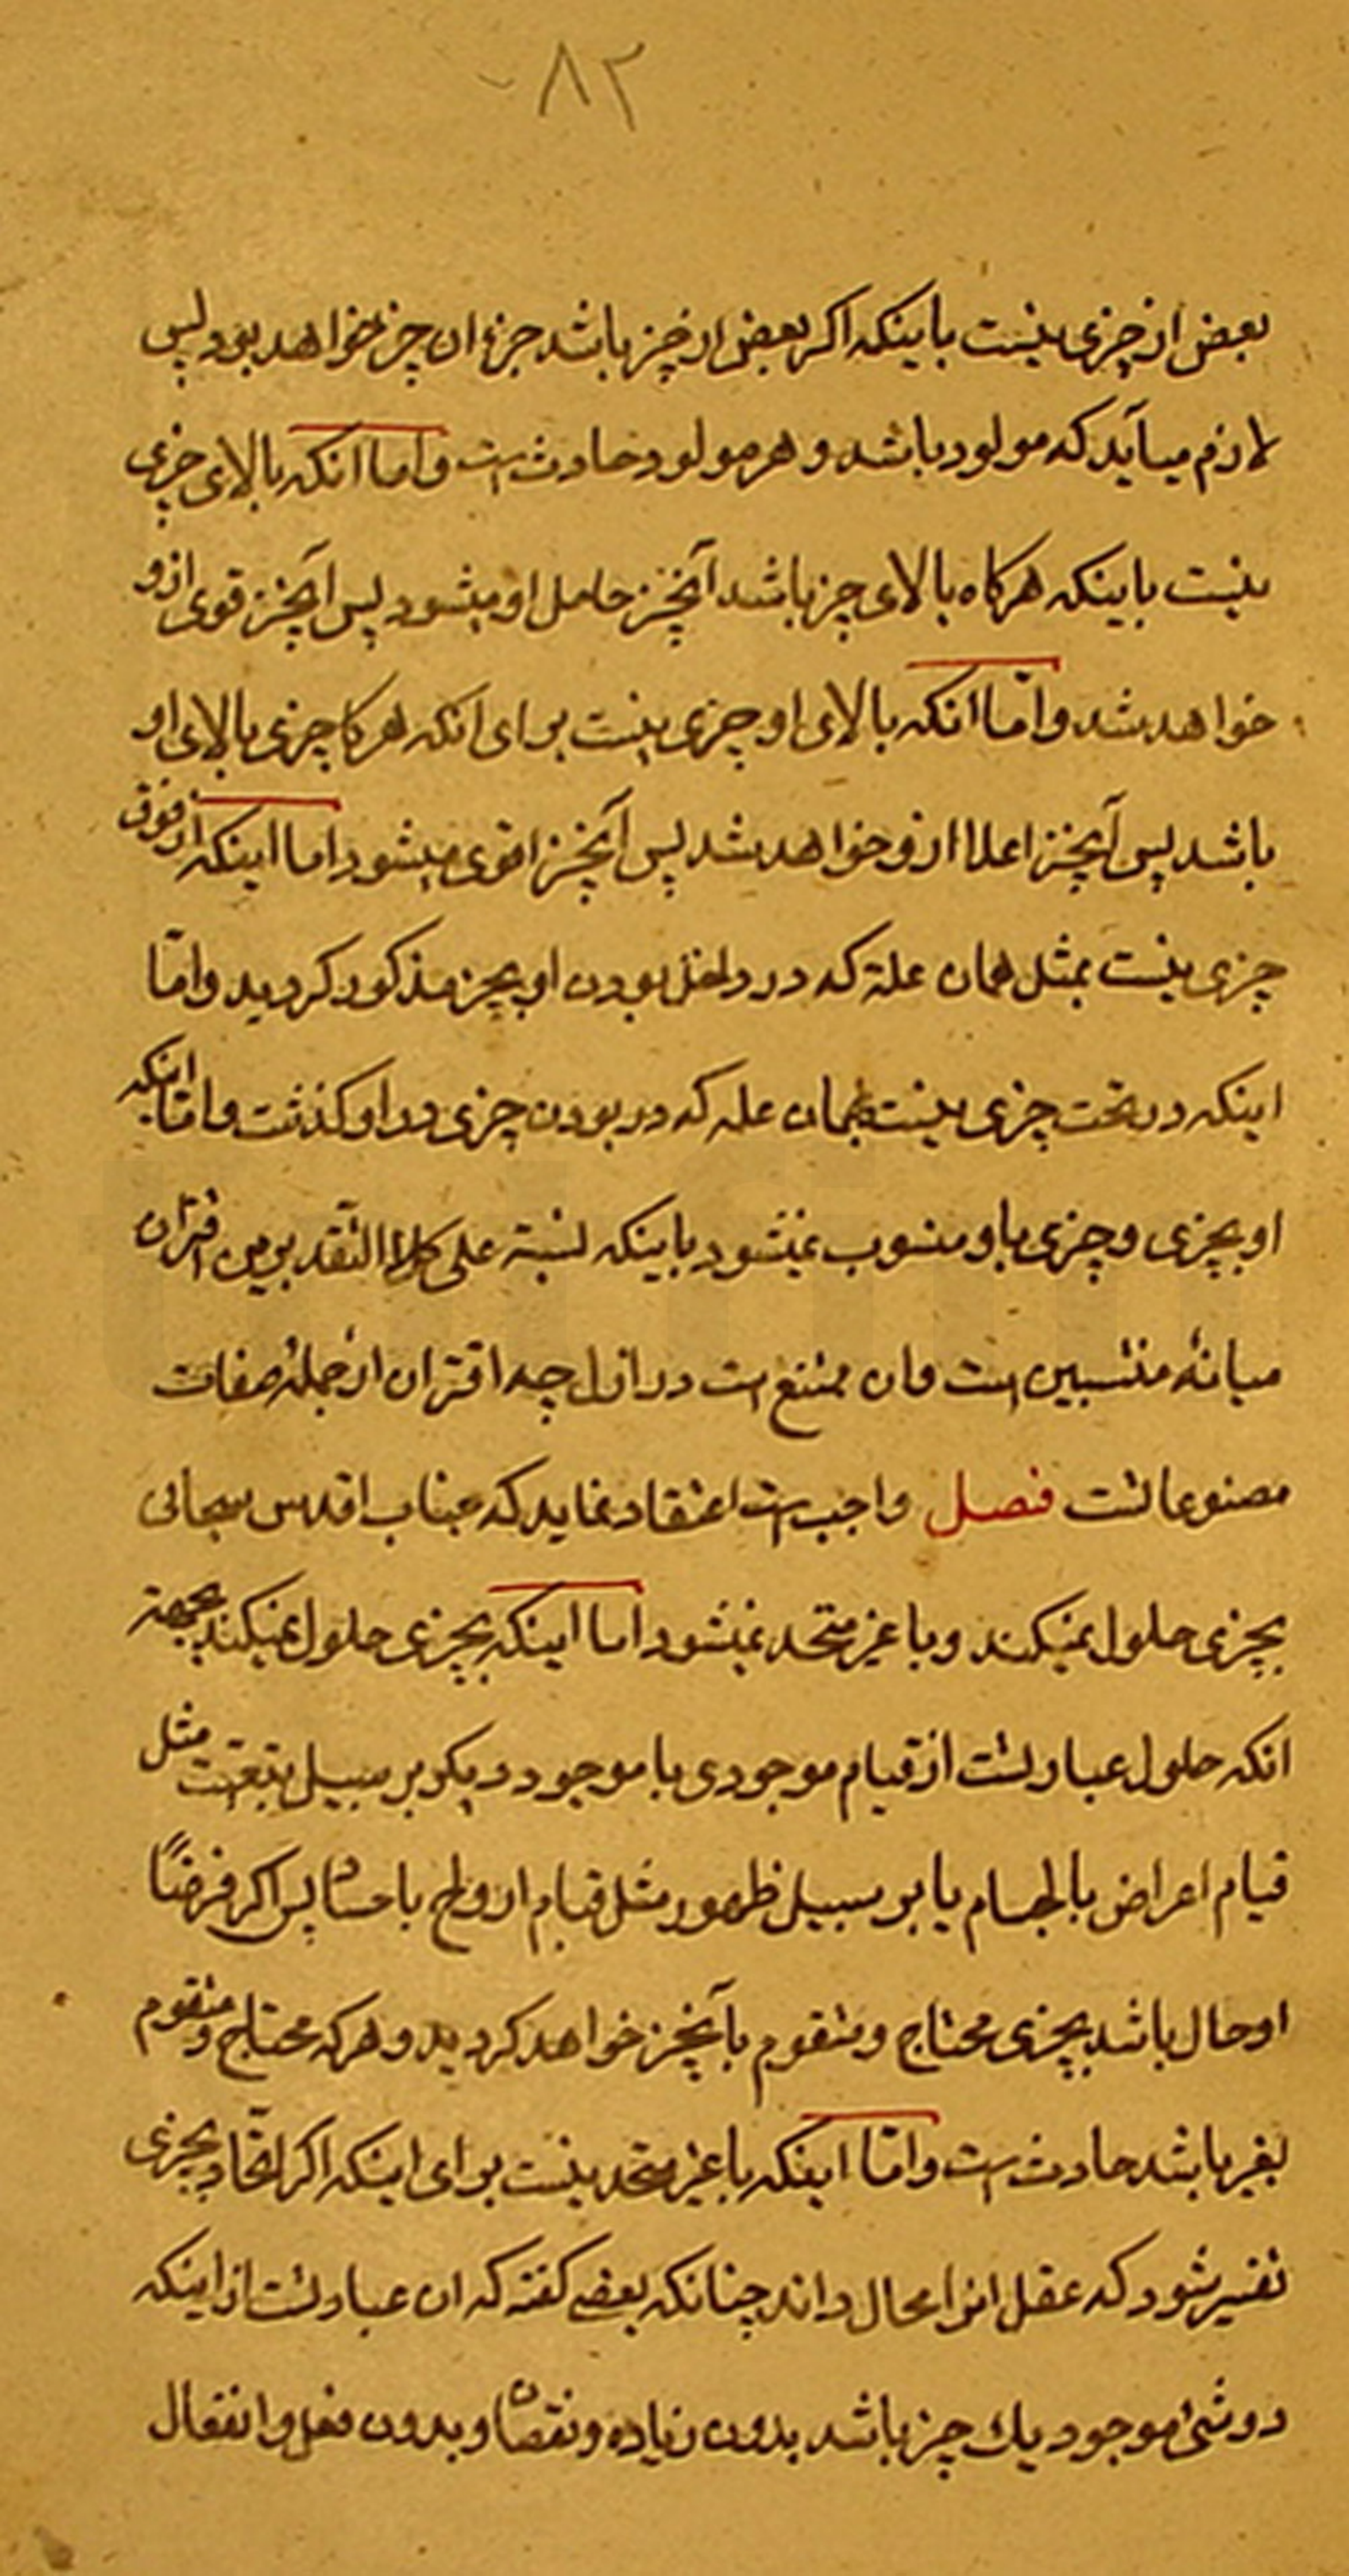 ۸۲
بعض از چیزی نیست باینکه اکر بعض از چیز باشد جزء ان چیز خواهد بود پس
لازم میآید که مولود باشد و هر مولود حادث است و اما انکه بالای چیزی
نیست باینکه هرکاه بالای چیز باشد آنچیز حامل او میشود پس آنچیز قوی ازو
خواهد شد و امّا انکه بالای او چیزی نیست برای انکه هرکا چیزی بالای او
باشد پس آنچیز اعلا ازو خواهد شد پس آنچیز اقوی میشود اما اینکه از فوق
چیزی نیست بمثل همان علة که در داخل بودن او بچیز مذکور کردید و امّا
اینکه در تحت چیزی نیست بهمان عله که در بودن چیزی در او کذشت و امّا اینکه
او بچیزی و چیزی باو منسوب نمیشود باینکه نسبة علی کلا التقدیرین اقتران
میانهٔ منتسبین است و ان ممتنع است در ازل چه اقتران از جملهٔ صفات
مصنوعاتست فصل واجب است اعتقاد نماید که جناب اقدس سبحانی
بچیزی حلول نمیکند و با غیر متحد نمیشود اما اینکه بچیزی حلول نمیکند بجهة
انکه حلول عبارتست از قیام موجودی با موجود دیکر بر سبیل تبعیّت مثل
قیام اعراض بالجسام یا بر سبیل ظهور مثل قیام ارواح باجسام پس اکر فرضًا
او حال باشد بچیزی محتاج و متقوم بآنچیز خواهد کردید و هر که محتاج و متقوم
بغیر باشد حادث است و امّا اینکه با غیر متحد نیست برای اینکه اکر اتّحاد بچیزی
تفسیر شود که عقل انرا محال داند چنانکه بعضی کفته که ان عبارتست از اینکه
دو شئ موجود یك چیز باشد بدون زیاده و نقصان و بدون فعل و انفعال